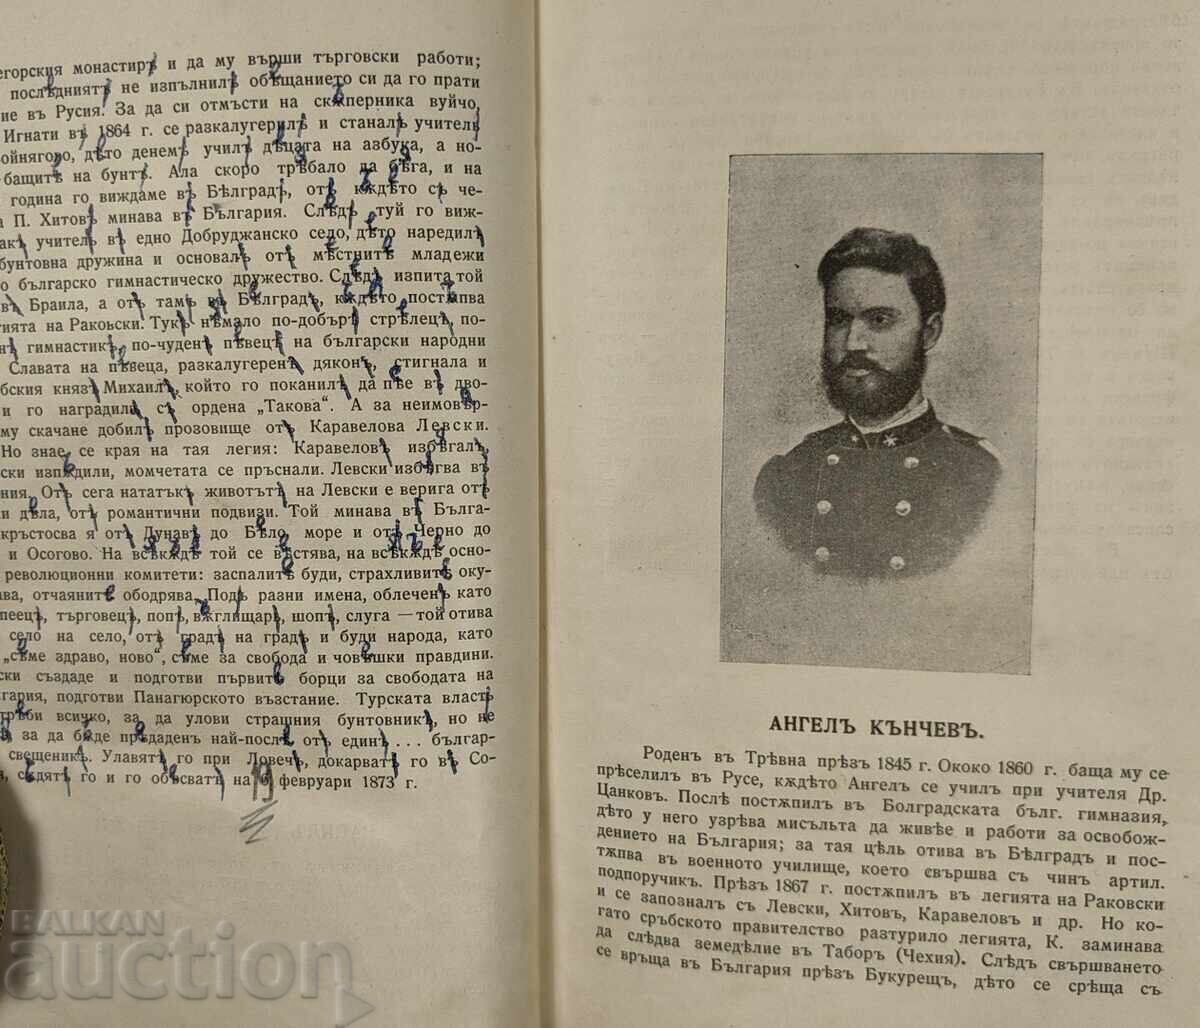 егорския монастирь и да му върши търговски работи;
последниятъ не изпълнилъ обѣщанието си да го прати
ние въ Русия. За да си отмъсти на скѫперника вуйчо,
Игнати въ 1864 г. се разкалугерилъ и станалъ учитель
ойнягово, дѣто денемъ училъ дѣцата на азбука, а но-
бащитѣ на бунтъ. Ала скоро трѣбало да бѣга, и на
година го виждаме въ Бѣлградъ, отъ кѫдѣто съ че-
а П. Хитовъ минава въ България. Слѣдъ туй го виж-
акъ учитель въ едно Добруджанско село, дѣто наредилъ
бунтовна дружина и основалъ отъ мѣстнитѣ младежи
о българско гимнастическо дружество. Слѣдъ изпита той
въ Браила, а отъ тамъ въ Бѣлградъ, кѫдѣто постѫпва
гията на Раковски. Тукъ нѣмало по-добъръ стрѣлецъ, по-
нъ гимнастикъ, по-чуденъ пѣвецъ на български народни
Славата на пѣвеца, разкалугеренъ дяконъ, стигнала и
бския князъ Михаилъ, който го поканилъ да пѣе въ дво-
и го наградилъ съ ордена „Такова". А за неимовѣр-
му скачане добилъ прозовище отъ Каравелова Левски.
Но знае се края на тая легия: Каравеловъ избѣгалъ,
ски изпѫдили, момчетата се пръснали. Левски избѣгва въ
ния. Отъ сега нататъкъ животътъ на Левски е верига отъ
и дѣла, отъ романтични подвизи. Той минава въ Бълга-
кръстосва я отъ Дунавъ до Бѣло море и отъ Черно до
и Осогово. На всѣкѫдѣ той се вѣстява, на всѣкѫдѣ осно-
революционни комитети: заспалитѣ буди, страхливитѣ оку-
ава, отчаянитѣ ободрява. Подъ разни имена, облеченъ като
пеецъ, търговецъ, попъ, вѫглищарь, шопъ, слуга — той отива
село на село, отъ градъ на градъ и буди народа, като
„сѣме здраво, ново", сѣме за свобода и човѣшки правдини.
ски създаде и подготви първитѣ борци за свободата на
гария, подготви Панагюрското възстание. Турската власть
трѣби всичко, за да улови страшния бунтовникъ, но не
за да бѫде прѣдаденъ най-послѣ отъ единъ . . . българ-
свещеникъ. Улавятъ го при Ловечъ, докарватъ го въ Со-
, сѫдятъ го и го обѣсватъ на 19 февруари 1873 г.
АНГЕЛЪ КЪНЧЕВЪ.
Роденъ въ Трѣвна прѣзъ 1845 г. Ококо 1860 г. баща му се
прѣселилъ въ Русе, кѫдѣто Ангелъ се училъ при учителя Др.
Цанковъ. Послѣ постѫпилъ въ Болградската бълг. гимназия,
дѣто у него узрѣва мисъльта да живѣе и работи за освобож-
дението на България; за тая цѣль отива въ Бѣлградъ и пос-
тѫпва въ военното училище, което свършва съ чинъ артил.
подпоручикъ. Прѣзъ 1867 г. постѫпилъ въ легията на Раковски
и се запозналъ съ Левски, Хитовъ, Каравеловъ и др. Но ко-
гато сръбското правителство разтурило легията, К. заминава
да слѣдва земедѣлие въ Таборъ (Чехия). Слѣдъ свършването
се връща въ България прѣзъ Букурещъ, дѣто се срѣща съ
BALKAN
auction